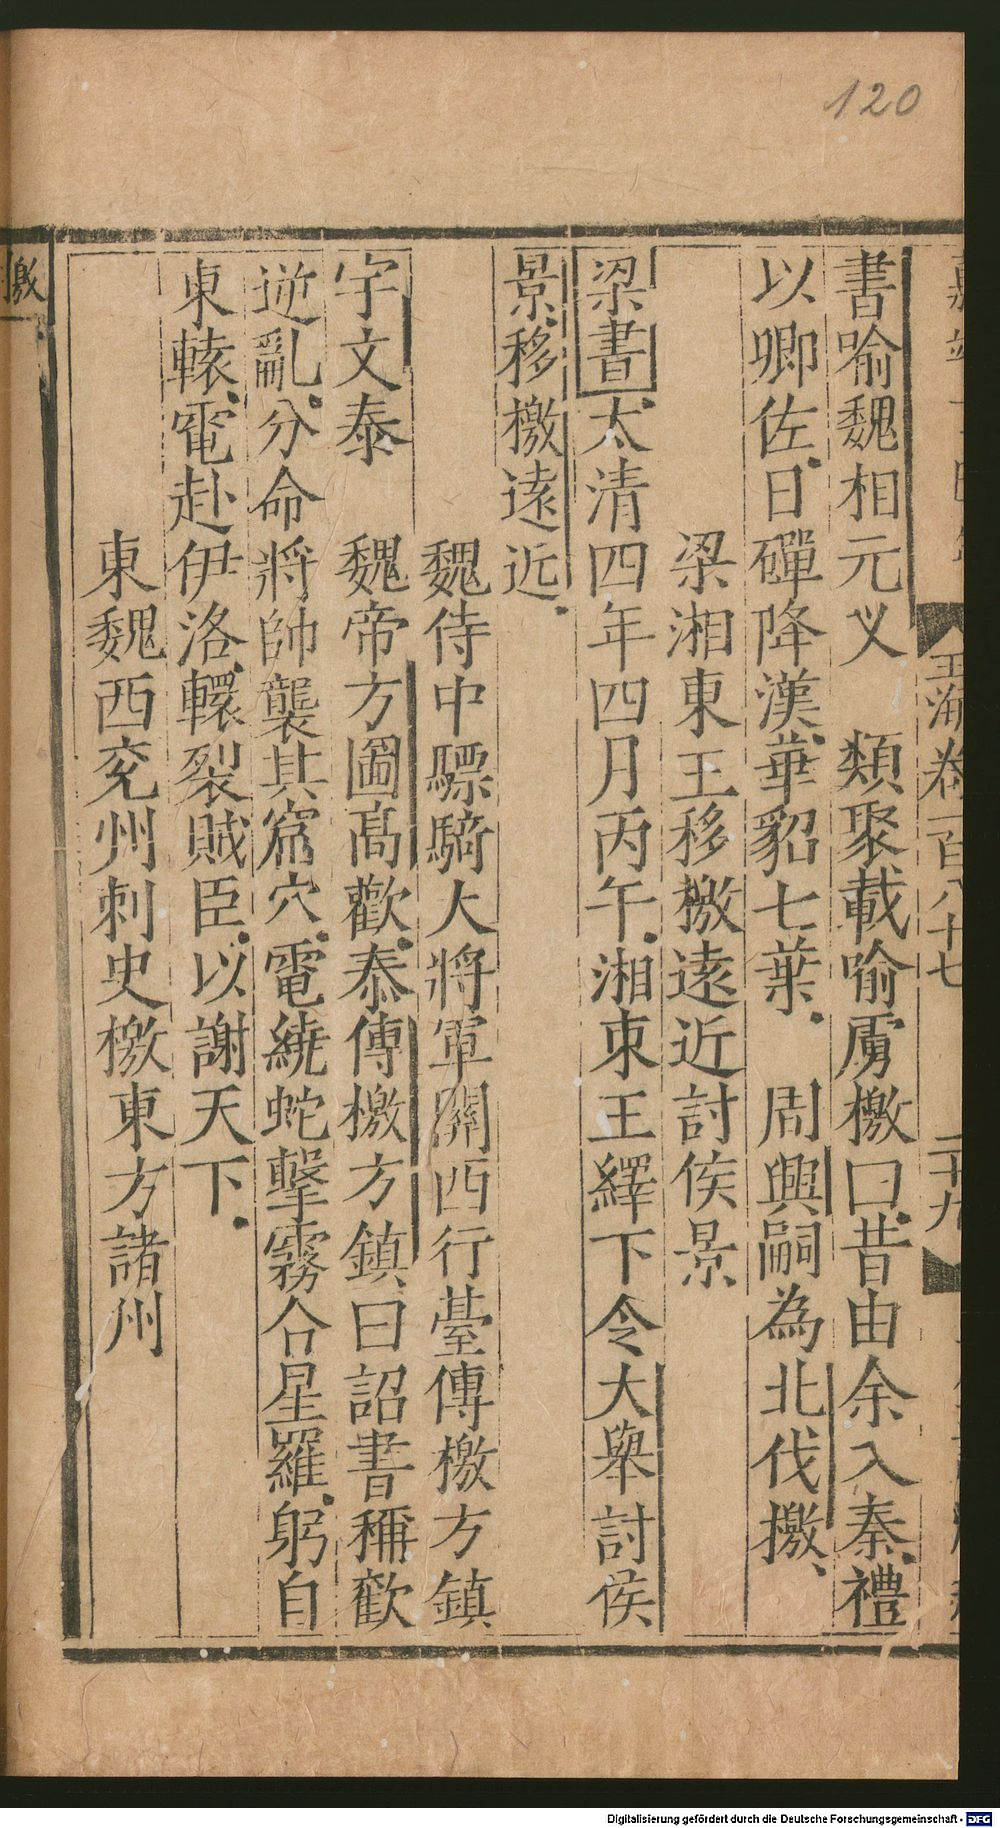 120
玉海卷一百八十七
二十九
書喻魏相元乂　類聚載喻虜檄曰昔由余入秦禮
以卿佐日磾降漢華貂七葉　周興嗣為北伐檄
梁湘東王移檄遠近討侯景
梁書太清四年四月丙午湘東王繹下令大舉討侯
景移檄遠近
魏侍中驃騎大將軍關西行臺傳檄方鎮
宇文泰　魏帝方圖高歡泰傳檄方鎮曰詔書稱歡
逆亂分命將帥襲其窟穴電繞蛇擊霧合星羅躬自
東轅電赴伊洛轘裂賊臣以謝天下
東魏西兖州刺史檄東方諸州
檄
Digitalisierung gefördert durch die Deutsche Forschungsgemeinschaft - DFG